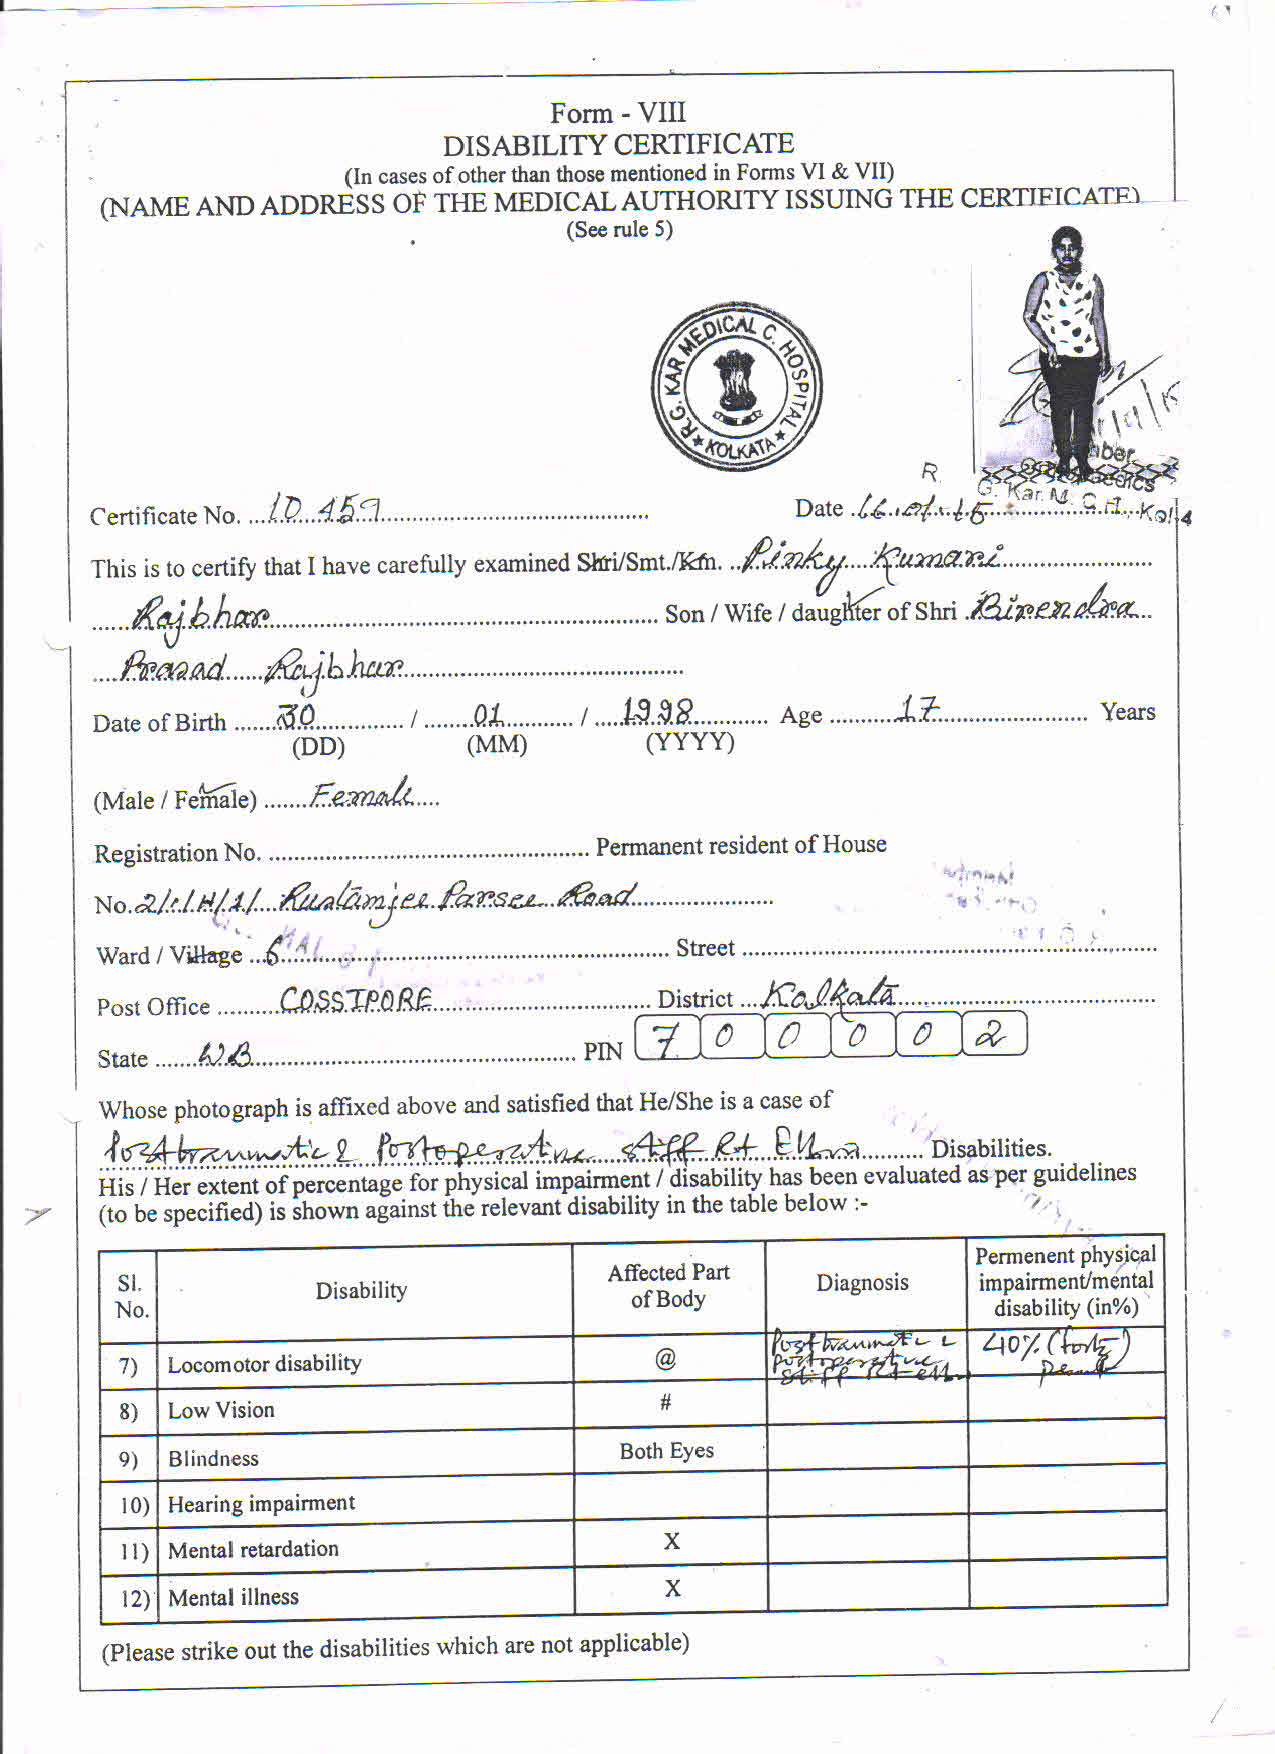 Form - VIII
DISABILITY CERTIFICATE
(In cases of other than those mentioned in Forms VI & VII)
(NAME AND ADDRESS OF THE MEDICAL AUTHORITY ISSUING THE CERTIFICATE)
(See rule 5)
R.G. KAR MEDICAL C. HOSPITAL
★ KOLKATA ★
R.
G. Kar. M. C. H., Kol-4
Certificate No. ...ID 459...
Date ..16.01.15...
This is to certify that I have carefully examined Shri/Smt./Km. ..Pinky Kumari...
...Rajbhar... Son / Wife / daughter of Shri ..Birendra..
....Prasad Rajbhar...
Date of Birth ...30... / ...01... / ...1998... Age ...17... Years
(DD) (MM) (YYYY)
(Male / Female) ...Female...
Registration No. ... Permanent resident of House
No. 2/1/H/1/ Rustamjee Parsee Road...
Ward / Village ...6... Street ...
Post Office ...COSSIPORE... District ...Kolkata...
State ...WB... PIN 7 0 0 0 0 2
Whose photograph is affixed above and satisfied that He/She is a case of
Posttraumatic & Postoperative stiff Rt Elbow... Disabilities.
His / Her extent of percentage for physical impairment / disability has been evaluated as per guidelines
(to be specified) is shown against the relevant disability in the table below :-
Sl. No. Disability Affected Part of Body Diagnosis Permenent physical impairment/mental disability (in%)
7) Locomotor disability @ Posttraumatic & postoperative stiff Rt elbow 40% (forty)
8) Low Vision #
9) Blindness Both Eyes
10) Hearing impairment
11) Mental retardation X
12) Mental illness X
(Please strike out the disabilities which are not applicable)